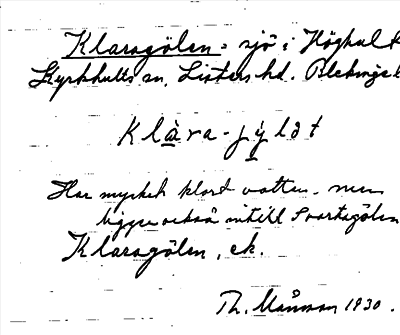 Klaragölen = sjö i Höghult
Kyrkhults sn, Listers hd. Blekinge l
Klàra-jýlət
Har mycket klart vatten, men
ligger också intill Svartegölen
Klaragölen, ek.
Th. Månsson 1930.